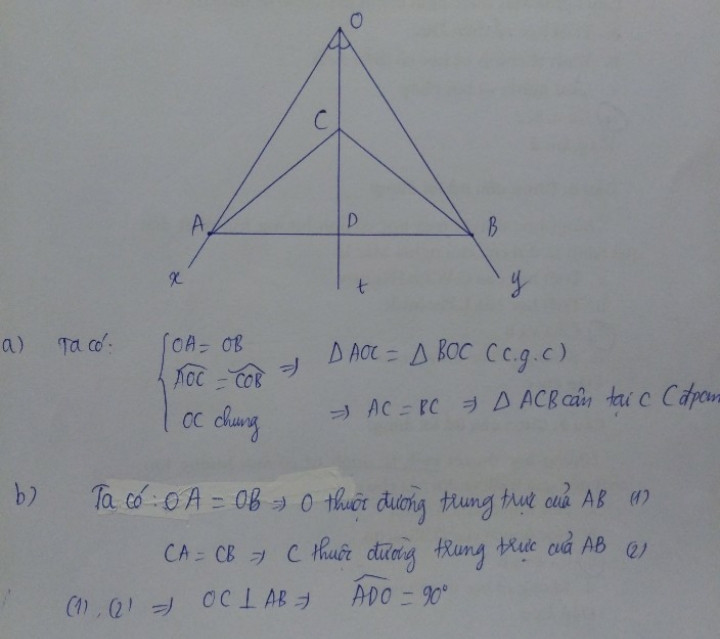 O
C
A D B
x t y
a) Ta có: OA = OB
∠AOC = ∠COB ⇒ Δ AOC = Δ BOC (c.g.c)
OC chung ⇒ AC = BC ⇒ Δ ACB cân tại C (đpcm
b) Ta có: OA = OB ⇒ O thuộc đường trung trực của AB (1)
CA = CB ⇒ C thuộc đường trung trực của AB (2)
(1), (2) ⇒ OC ⊥ AB ⇒ ∠ADO = 90°